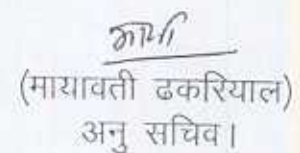 (मायावती ढकरियाल)
अनु सचिव।